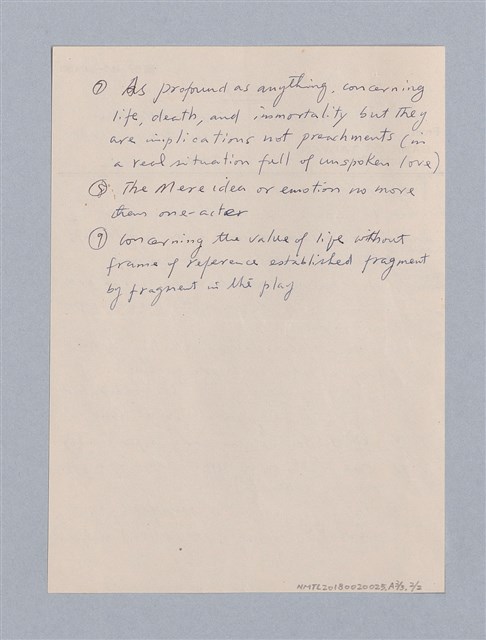 ⑦ As profound as anything, concerning
life, death, and immortality but they
are implications not preachments (in
a real situation full of unspoken love)
⑧ The Mere idea or emotion no more
than one-acter
⑨ Concerning the value of life without
frame of reference established fragment
by fragment in the play
NMTL20180020025.A2/3. 2/2